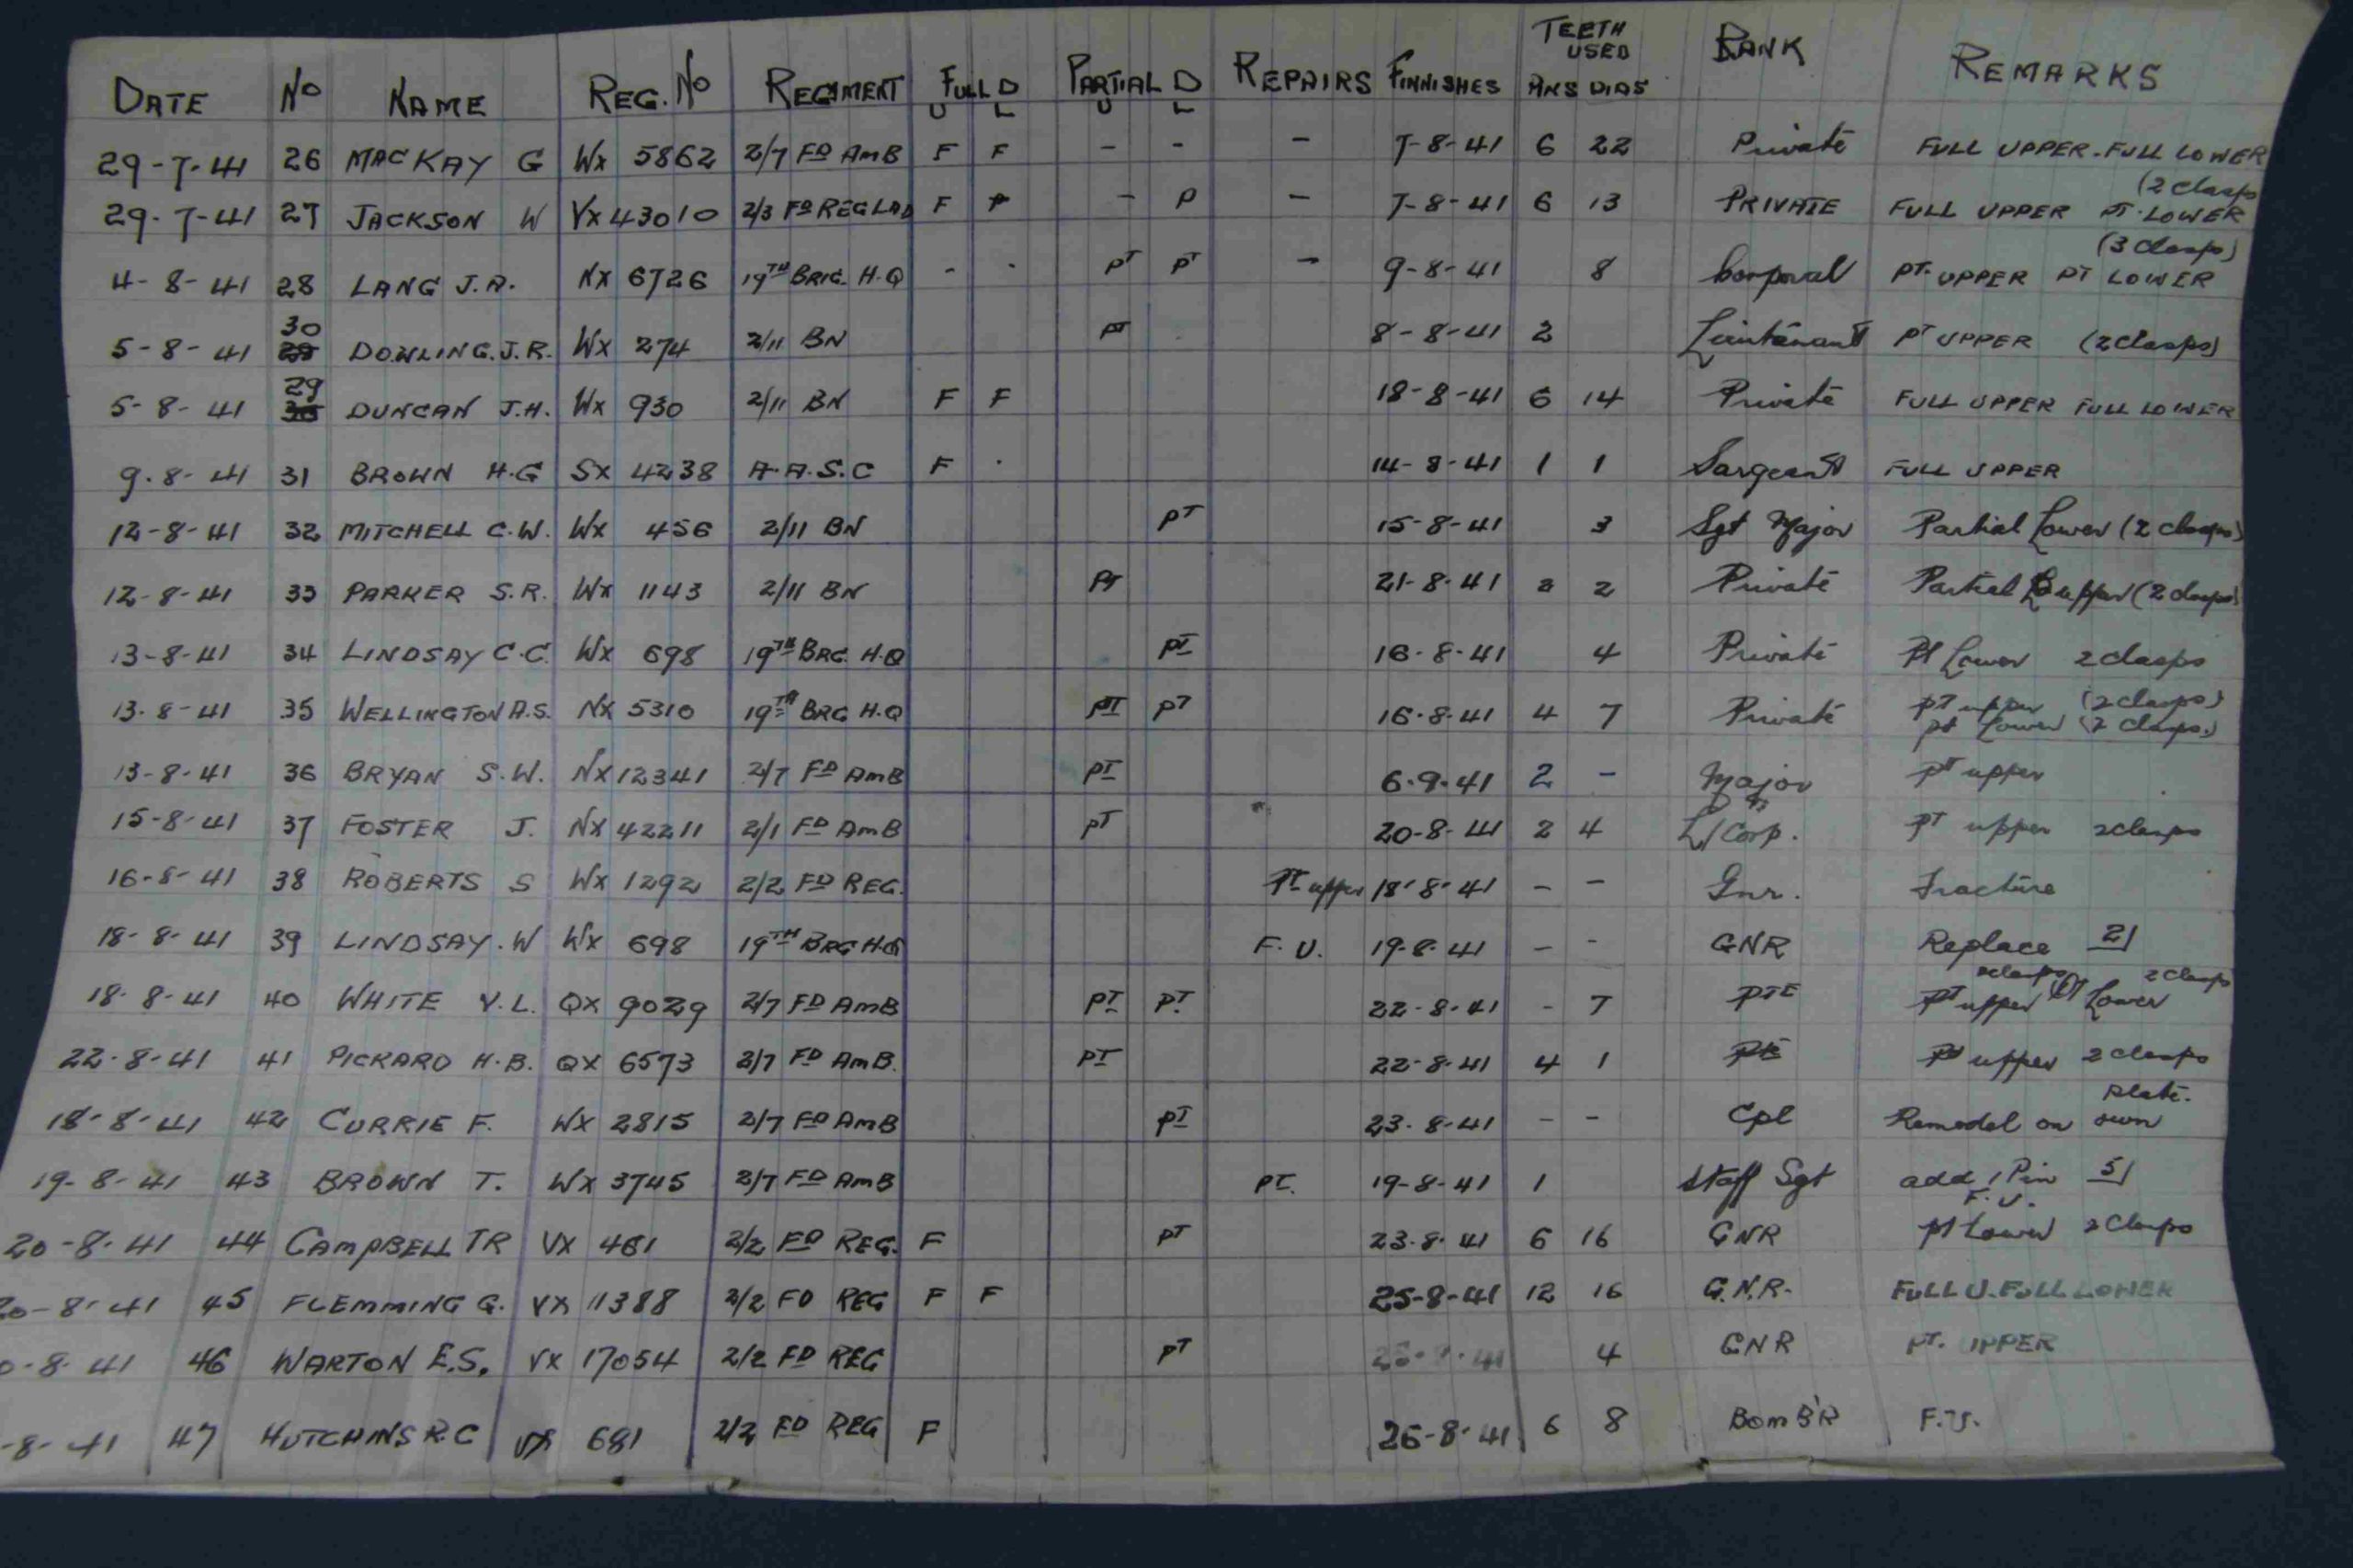 TEETH USED
DATE No NAME REG. No REGIMENT FULL D U L PARTIAL D U L REPAIRS FINNISHES PINS DIAS RANK REMARKS
29-7-41 26 MACKAY G WX 5862 2/7 FD AMB F F - - - 7-8-41 6 22 Private FULL UPPER-FULL LOWER
(2 clasps
29-7-41 27 JACKSON W VX 43010 2/3 FD REG LAD F - P - 7-8-41 6 13 PRIVATE FULL UPPER PT. LOWER
(3 clasps)
4-8-41 28 LANG J.A. NX 6726 19TH BRIG. H.Q - - PT PT - 9-8-41 8 Corporal PT. UPPER PT LOWER
5-8-41 30 DOWLING. J.R. WX 274 2/11 BN PT 8-8-41 2 Lieutenant PT UPPER (2 clasps)
5-8-41 29 DUNCAN J.H. WX 930 2/11 BN F F 18-8-41 6 14 Private FULL UPPER FULL LOWER
9.8-41 31 BROWN H.G SX 4238 A.A.S.C F . 14-8-41 1 1 Sargeant FULL UPPER
12-8-41 32 MITCHELL C.W. WX 456 2/11 BN PT 15-8-41 3 Sgt Major Partial Lower (2 clasps)
12-8-41 33 PARKER S.R. WX 1143 2/11 BN PT 21-8-41 2 2 Private Partial upper (2 clasps)
13-8-41 34 LINDSAY C.C. WX 698 19TH BRG. H.Q PT 16-8-41 4 Private Pt Lower 2 clasps
13-8-41 35 WELLINGTON A.S. NX 5310 19TH BRG H.Q PT PT 16-8-41 4 7 Private pt upper (2 clasps)
pt Lower (2 clasps.)
13-8-41 36 BRYAN S.W. NX 12341 2/7 FD AMB PT 6-9-41 2 - Major pt upper
15-8-41 37 FOSTER J. NX 42211 2/1 FD AMB PT 20-8-41 2 4 L/Corp. pt upper 2 clasps
16-8-41 38 ROBERTS S WX 1292 2/2 FD REG. Pt upper 18-8-41 - - Gnr. Fracture
18-8-41 39 LINDSAY. W WX 698 19TH BRG H.Q F. U. 19-8-41 - - GNR Replace 2|
2 clasps 2 clasps
18-8-41 40 WHITE V.L. QX 9029 2/7 FD AMB PT PT. 22-8-41 - 7 PTE Pt upper Pt Lower
22-8-41 41 PICKARD H.B. QX 6573 2/7 FD AMB. PT 22-8-41 4 1 PTE Pt upper 2 clasps
plate.
18-8-41 42 CURRIE F. WX 2815 2/7 FD AMB PT 23-8-41 - - Cpl Remodel on own
19-8-41 43 BROWN T. WX 3745 2/7 FD AMB PT. 19-8-41 1 Staff Sgt add 1 Pin 5|
F. U.
20-8-41 44 CAMPBELL TR VX 461 2/2 FD REG. F PT 23-8-41 6 16 GNR pt Lower 2 Clasps
20-8-41 45 FLEMMING G. VX 11388 2/2 FD REG F F 25-8-41 12 16 G.N.R. FULL U. FULL LOWER
0-8-41 46 WARTON E.S. VX 17054 2/2 FD REG PT 4 GNR PT. UPPER
-8-41 47 HUTCHINS R.C VX 681 2/2 FD REG F 26-8-41 6 8 BOMB'R F.U.